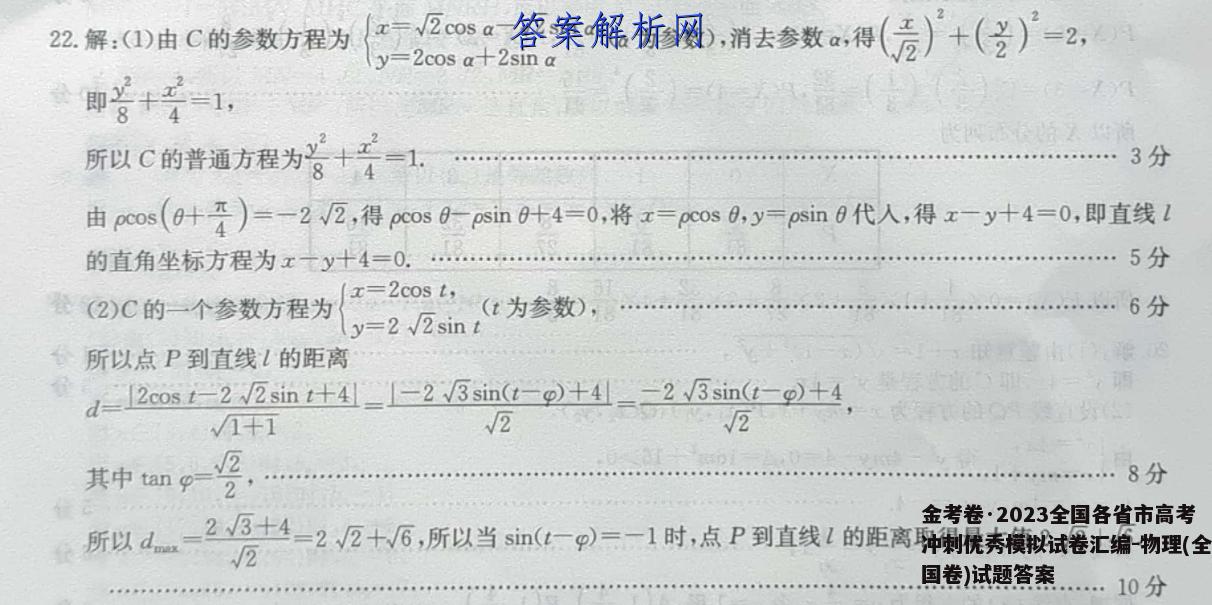 答案解析网
22. 解:(1)由 C 的参数方程为 { x=√2cos α 参数),消去参数 α,得 (x/√2)² + (y/2)² =2,
y=2cos α+2sin α
即 y²/8 + x²/4 =1,
所以 C 的普通方程为 y²/8 + x²/4 =1. …… 3 分
由 ρcos(θ+π/4)=-2√2,得 ρcos θ-ρsin θ+4=0,将 x=ρcos θ,y=ρsin θ 代人,得 x-y+4=0,即直线 l
的直角坐标方程为 x-y+4=0. …… 5 分
(2)C 的一个参数方程为 { x=2cos t, y=2√2sin t (t 为参数), …… 6 分
所以点 P 到直线 l 的距离
d= |2cos t-2√2sin t+4|/√1+1 = |-2√3sin(t-φ)+4|/√2 = -2√3sin(t-φ)+4/√2 ,
其中 tan φ= √2/2 , …… 8 分
所以 dmax= 2√3+4/√2 =2√2+√6,所以当 sin(t-φ)=-1 时,点 P 到直线 l 的距离取
…… 10 分
金考卷·2023全国各省市高考
冲刺优秀模拟试卷汇编-物理(全
国卷)试题答案